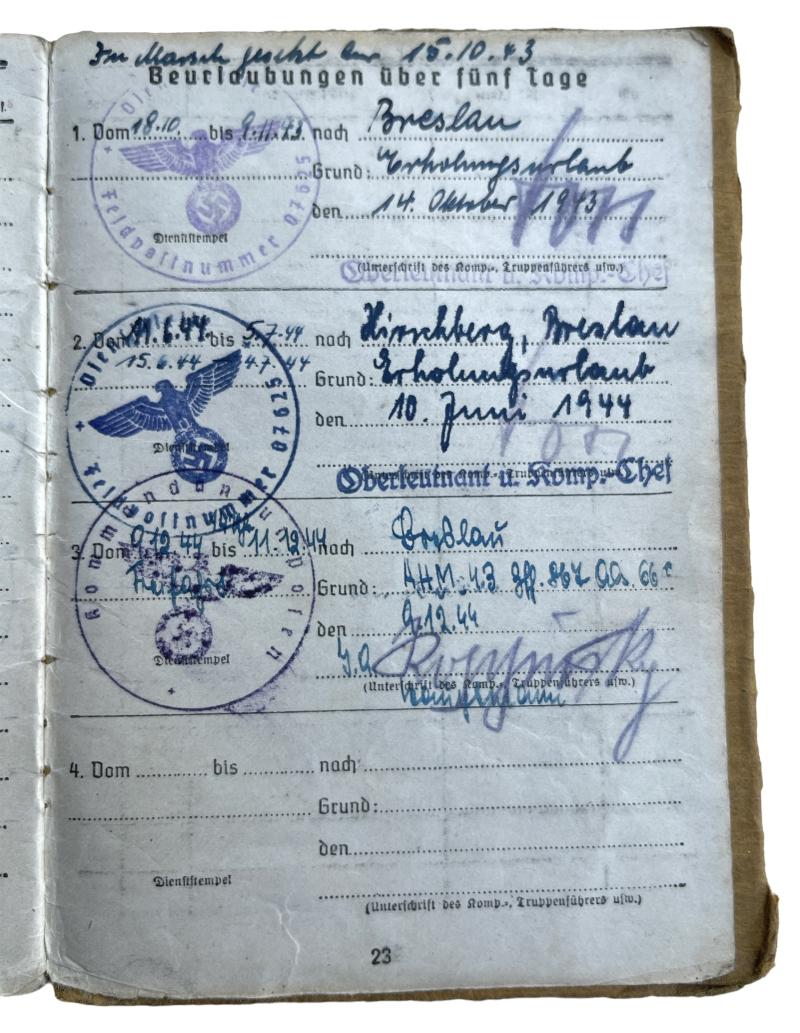 In Marsch gesetzt am 15.10.43
Beurlaubungen über fünf Tage
1. Vom 18.10. bis 9.11.43 nach Breslau
Grund: Erholungsurlaub
den 14. Oktober 1943
Dienststempel
(Unterschrift des Komp.-, Truppenführers usw.)
Oberleutnant u. Komp.-Chef
Feldpostnummer 07625
2. Vom 11.6.44 bis 5.7.44 nach Hirschberg, Breslau
15.6.44 4.7.44
Grund: Erholungsurlaub
den 10. Juni 1944
Dienststempel
Oberleutnant u. Komp.-Chef
Feldpostnummer 07625
3. Vom 9.12.44 bis 11.12.44 nach Breslau
Grund: AHM. 43 Ziff. 867
den 9.12.44
I.A.
Dienststempel
(Unterschrift des Komp.-, Truppenführers usw.)
Kommandantur Posen
4. Vom bis nach
Grund:
den
Dienststempel
(Unterschrift des Komp.-, Truppenführers usw.)
23